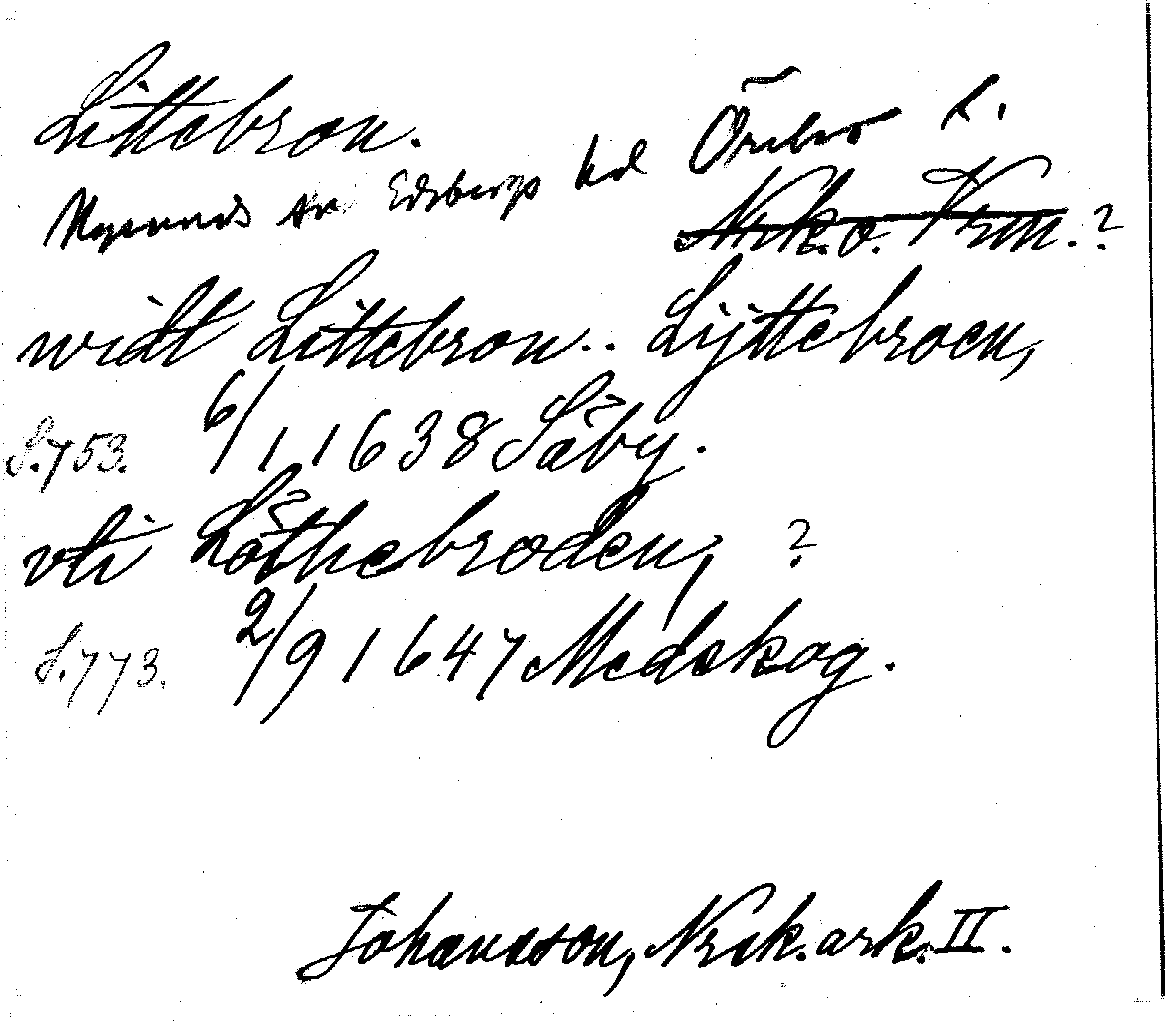 Littebron.
Nysunds sn Edsbergs hd Örebro l.
Nrk. o. Vrm. ?
widt Littebron.. Lijttebroen,
S. 753. 6/1 1638 Säby.
vti Löthebroden, ?
S. 773. 2/9 1647 Medskog.
Johansson, Nrik. ark. II.